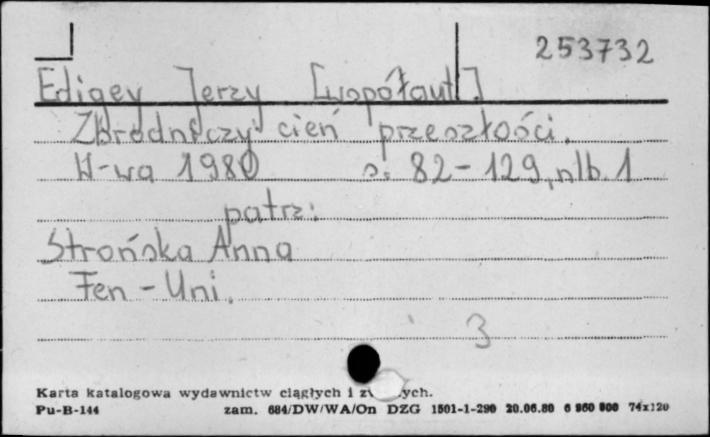 253732
Edigey Jerzy [współaut.]
Zbrodniczy cień przeszłości.
W-wa 1980 s. 82-129, nlb. 1
patrz:
Strońska Anna
Fen-Uni.
3
Karta katalogowa wydawnictw ciągłych i
Pu-B-144 zam. 684/DW/WA/On DZG 1501-1-290 20.06.80 6 960 000 74x120